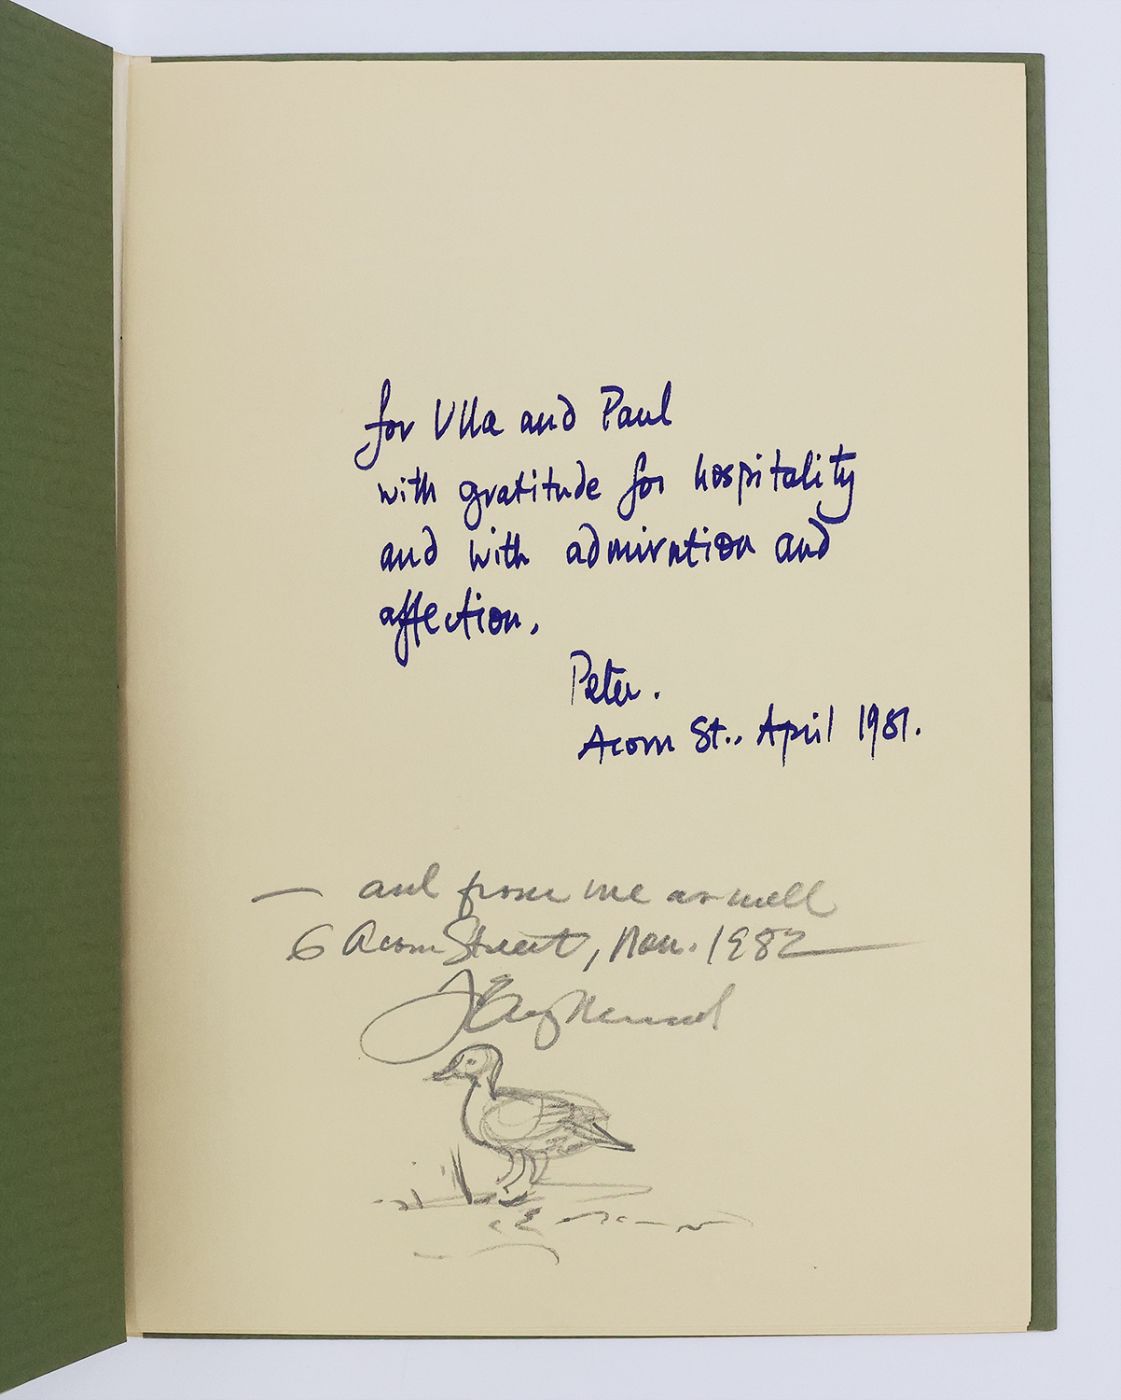 for Ulla and Paul
with gratitude for hospitality
and with admiration and
affection.
Peter.
Acorn St., April 1981.
— and from me as well
6 Acorn Street, Nov. 1982